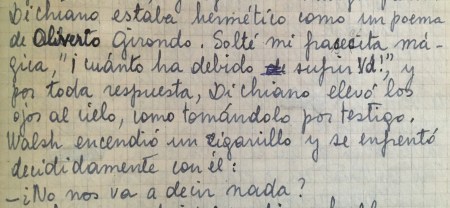 Dichiano estaba hermético como un poema
de Oliverio Girondo. Solté mi frasecita má-
gica, "¡cuánto ha debido sufrir Vd!", y
por toda respuesta, Dichiano elevó los
ojos al cielo, como tomándolo por testigo.
Walsh encendió un cigarrillo y se enfrentó
decididamente con él:
—¿No nos va a decir nada?